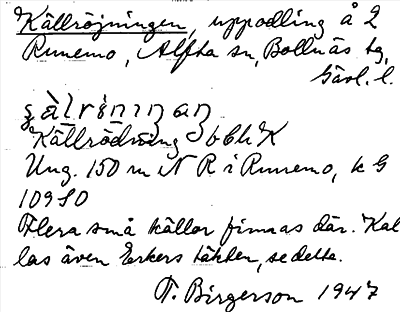 Källröjningen, uppodling å 2
Runemo, Alfta sn, Bollnäs tg,
Gävl. l.
Källrödning bChK
Ung. 150 m N R i Runemo, k G
109 S0
Flera små källor finnas där. Kal
las även Erkers täkten, se detta.
T. Birgerson 1947